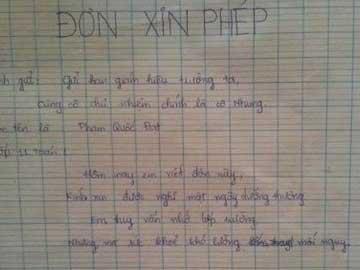 ĐƠN XIN PHÉP
gửi: Gửi ban giám hiệu trường ta,
Cùng cô chủ nhiệm chính là cô Nhung.
tên là Phạm Quốc Đạt
11 Toán 1
Hôm nay em viết đơn này,
Kính xin được nghỉ một ngày đường trường
Em tuy vẫn nhớ lớp
Nhưng mà sức khoẻ khó lường, mới nguy